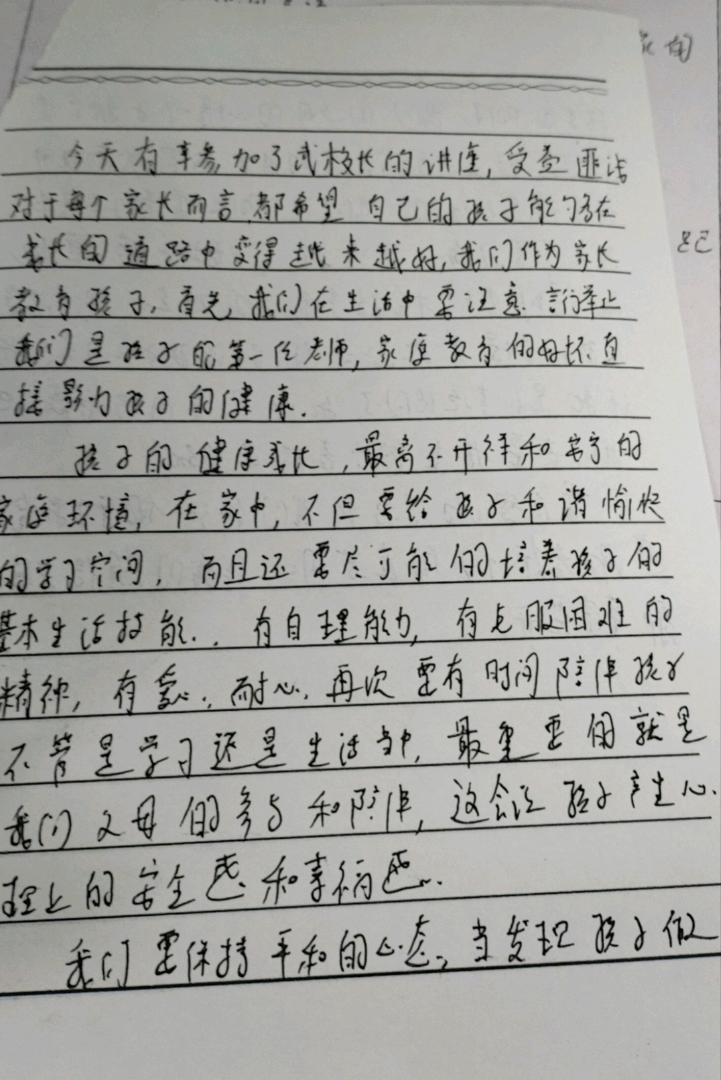 今天有幸参加了武校长的讲座，受益匪浅
对于每个家长而言，都希望自己的孩子能够在
成长的道路中变得越来越好，我们作为家长
教育孩子，首先，我们在生活中要注意言行举止
我们是孩子的第一任老师，家庭教育的好坏直
接影响孩子的健康.
孩子的健康成长，最离不开祥和安宁的
家庭环境，在家中，不但要给孩子和谐愉快
的学习空间，而且还要尽可能的培养孩子的
基本生活技能.，有自理能力，有克服困难的
精神，有爱心，耐心，再次要有时间陪伴孩子
不管是学习还是生活当中，最重要的就是
我们父母的参与和陪伴，这会让孩子产生心
理上的安全感和幸福感.
我们要保持平和的心态，当发现孩子做